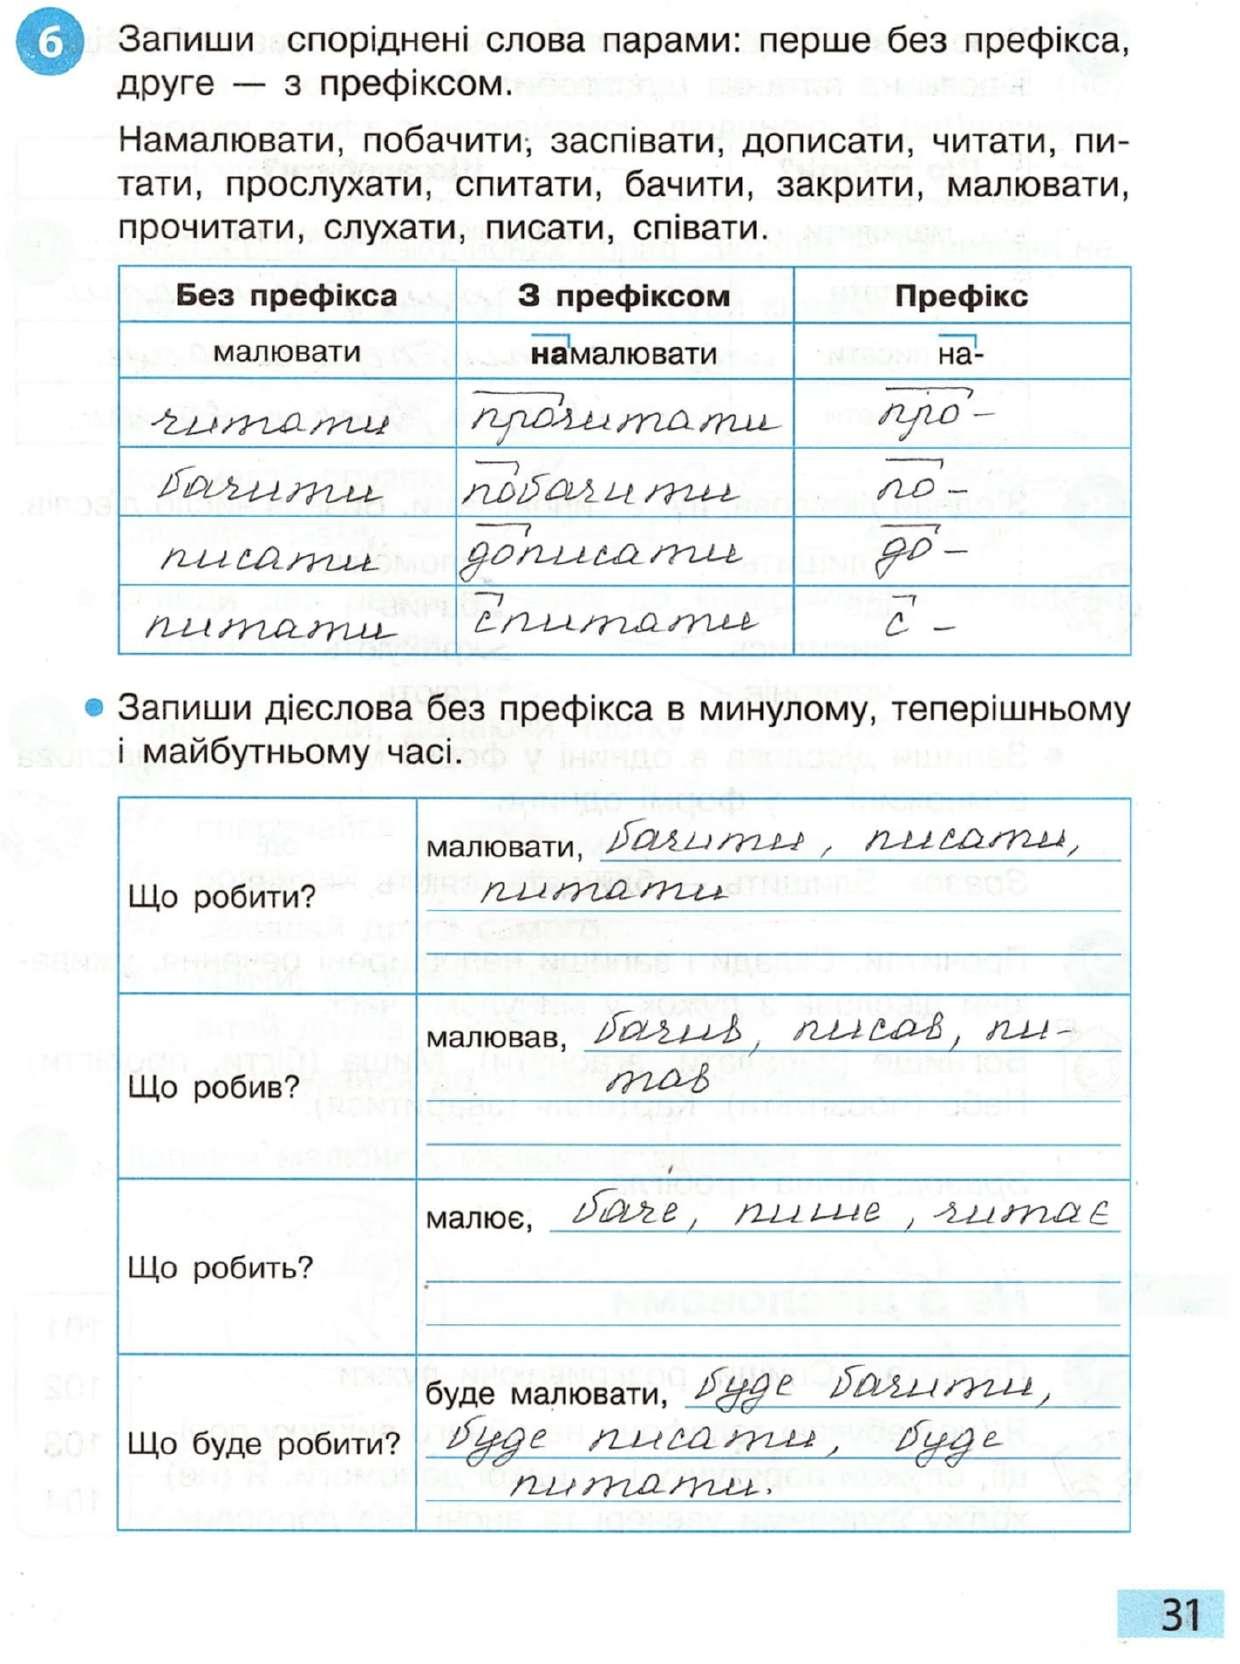 6 Запиши споріднені слова парами: перше без префікса,
друге — з префіксом.
Намалювати, побачити, заспівати, дописати, читати, пи-
тати, прослухати, спитати, бачити, закрити, малювати,
прочитати, слухати, писати, співати.
Без префікса З префіксом Префікс
малювати намалювати на-
читати прочитати про-
бачити побачити по-
писати дописати до-
питати спитати с-
• Запиши дієслова без префікса в минулому, теперішньому
і майбутньому часі.
малювати, бачити, писати,
Що робити? питати
малював, бачив, писав, пи-
Що робив? тав
малює, баче, пише, читає
Що робить?
буде малювати, буде бачити,
Що буде робити? буде писати, буде
питати.
31